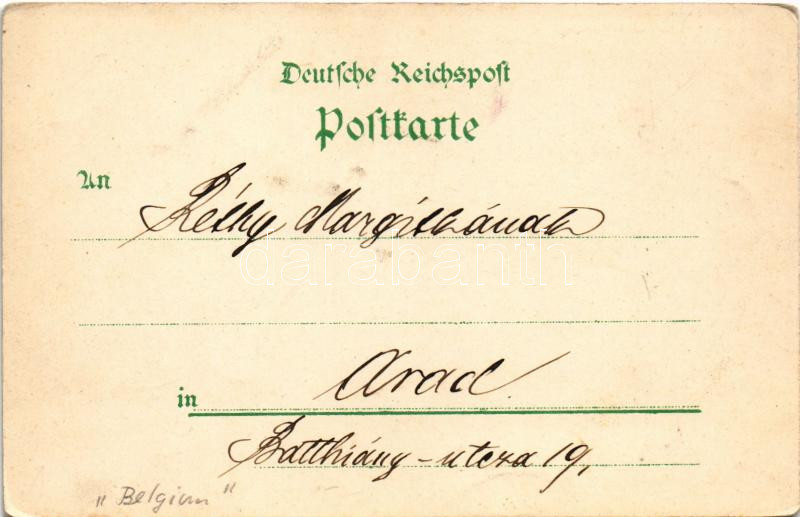 Deutsche Reichspost
Postkarte
An
Réthy Margitkának
darabanth
in Arad.
Batthiány-utcza 19,
"Belgium"